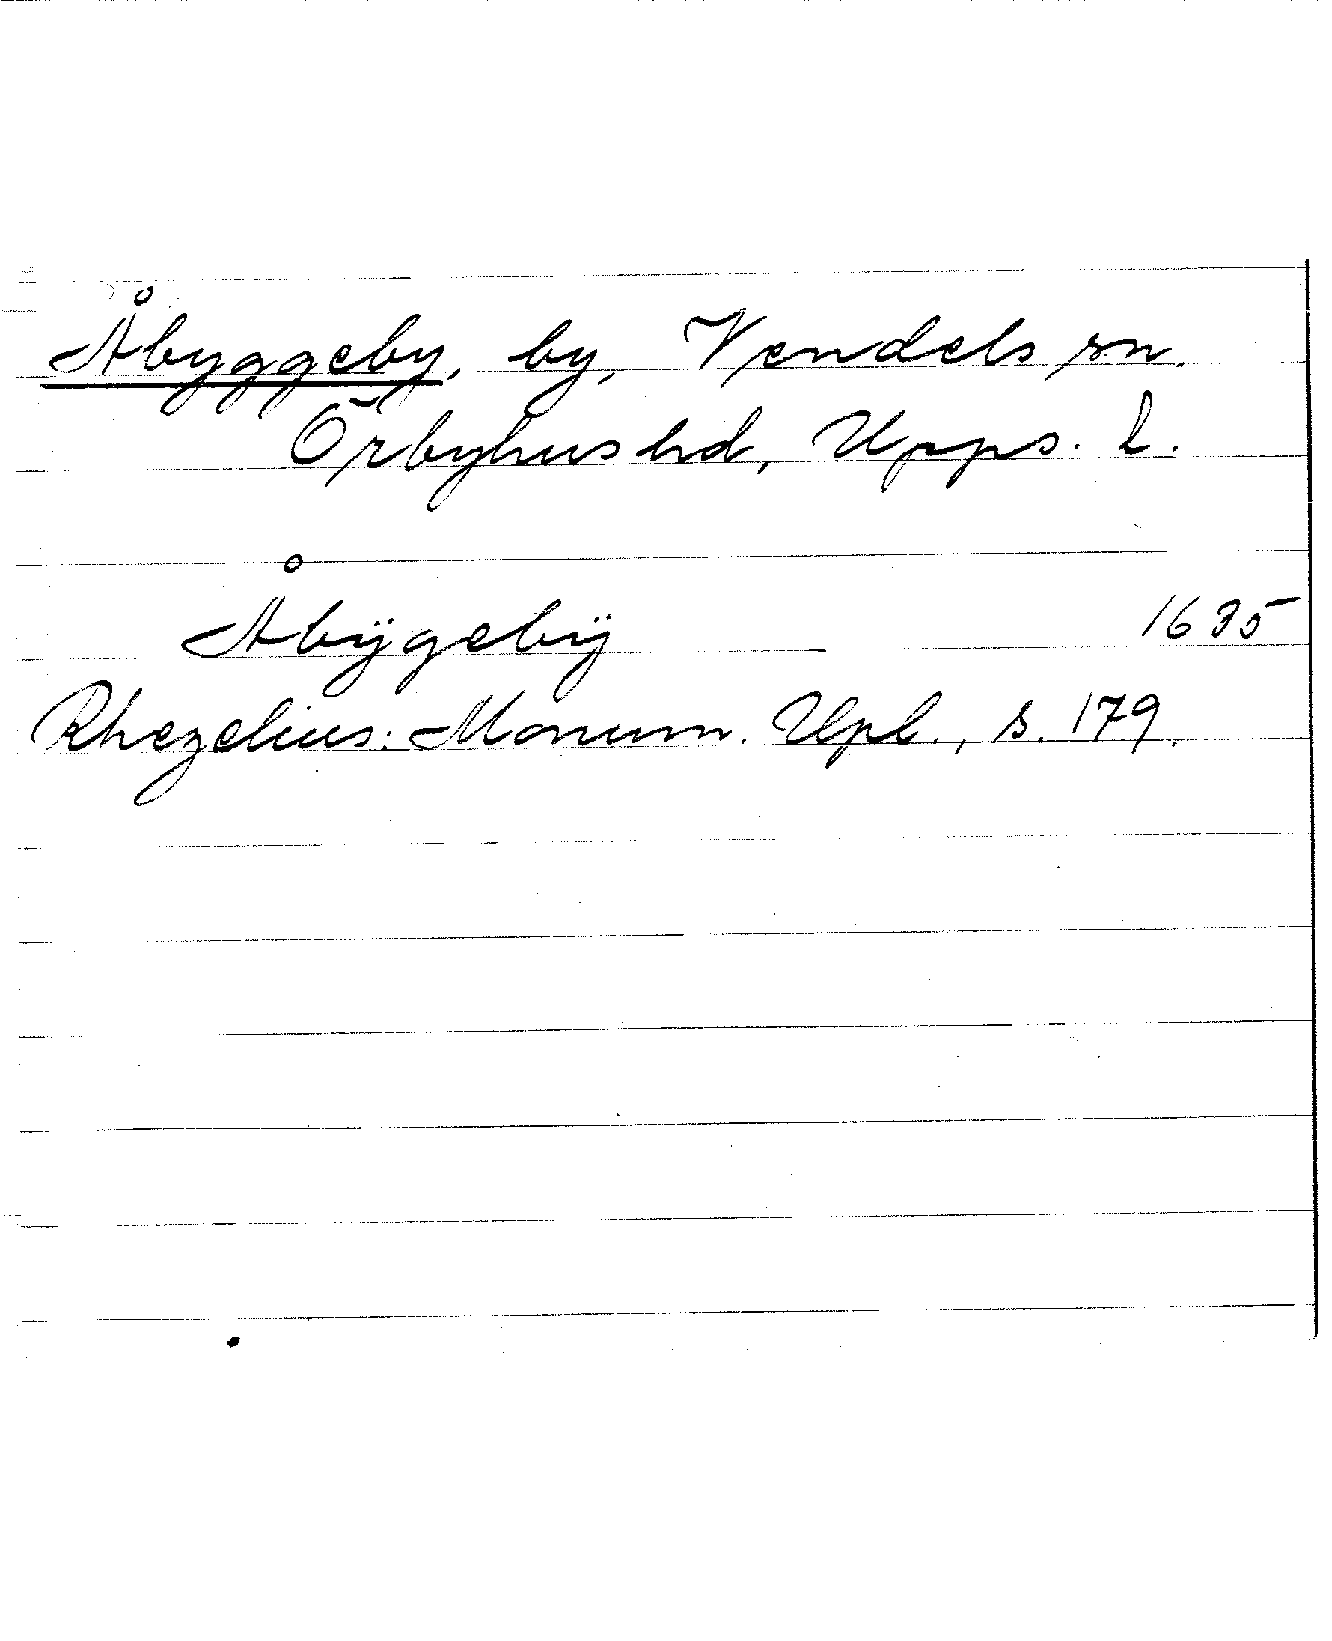 Åbyggeby, by, Vendels sn.
Örbyhus hd, Upps. l.
Åbÿgebÿ 1635
Rhezelius: Monum. Upl., s. 179.